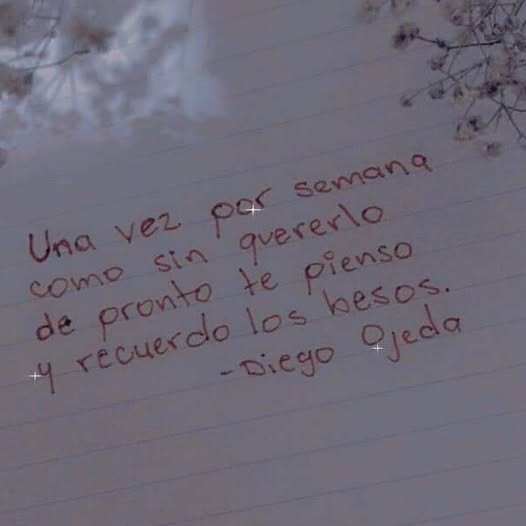 Una vez por semana
como sin quererlo
de pronto te pienso
y recuerdo los besos.
-Diego Ojeda